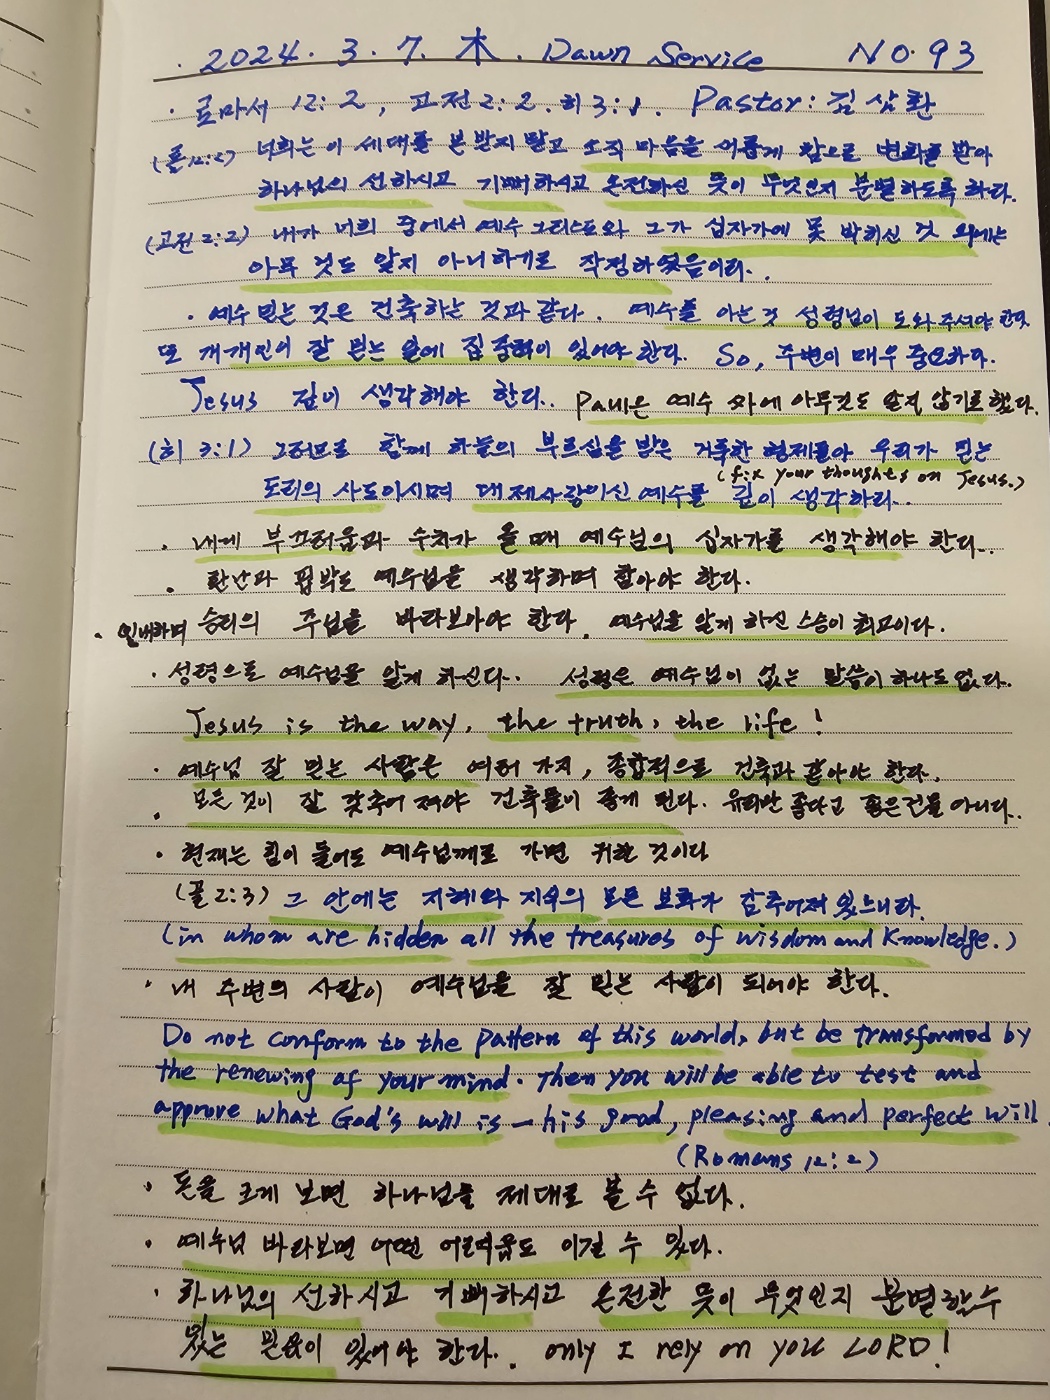 . 2024. 3. 7. 木. Dawn Service NO. 93
· 로마서 12: 2, 고전 2: 2. 히 3:1. Pastor: 김삼환
(롬12:2) 너희는 이 세대를 본 받지 말고 오직 마음을 새롭게 함으로 변화를 받아
하나님의 선하시고 기뻐하시고 온전하신 뜻이 무엇인지 분별하도록 하라.
(고전 2:2) 내가 너희 중에서 예수 그리스도와 그가 십자가에 못 박히신 것 외에는
아무 것도 알지 아니하기로 작정하였음이라..
· 예수 믿는 것은 건축하는 것과 같다. 예수를 아는것 성령님이 도와주셔야 한다
또 개개인이 잘 믿는 일에 집중력이 있어야 한다. So, 주변이 매우 중요하다.
Jesus 깊이 생각해야 한다.. Paul은 예수 외에 아무것도 알지 않기로 했다.
(히 3:1) 그러므로 함께 하늘의 부르심을 받은 거룩한 형제들아 우리가 믿는
(fix your thoughts on Jesus.)
도리의 사도이시며 대제사장이신 예수를 깊이 생각하라..
· 내게 부끄러움과 수치가 올 때 예수님의 십자가를 생각해야 한다..
. 환난과 핍박도 예수님을 생각하며 참아야 한다.
· 인내하며 승리의 주님을 바라보아야 한다. 예수님을 알게 하신 스승이 최고이다.
· 성령으로 예수님을 알게 하신다. 성경은 예수님이 없는 말씀이 하나도 없다.
Jesus is the way, the truth, the life!
· 예수님 잘 믿는 사람은 여러 가지, 종합적으로 건축과 같아야 한다.
. 모든 것이 잘 갖추어 져야 건축물이 좋게 된다. 유리만 좋다고 좋은건물 아니다.
· 현재는 힘이 들어도 예수님께로 가면 귀한 것이다
(골 2:3) 그 안에는 지혜와 지식의 모든 보화가 감추어져 있느니라.
(in whom are hidden all the treasures of wisdom and knowledge.)
· 내 주변의 사람이 예수님을 잘 믿는 사람이 되어야 한다.
Do not conform to the pattern of this world, but be transformed by
the renewing of your mind. Then you will be able to test and
approve what God's will is – his good, pleasing and perfect will.
(Romans 12:2)
· 돈을 크게 보면 하나님을 제대로 볼 수 없다.
· 예수님 바라보면 어떤 어려움도 이길 수 있다.
· 하나님의 선하시고 기뻐하시고 온전한 뜻이 무엇인지 분별할수
있는 믿음이 있어야 한다.. only I rely on you LORD!